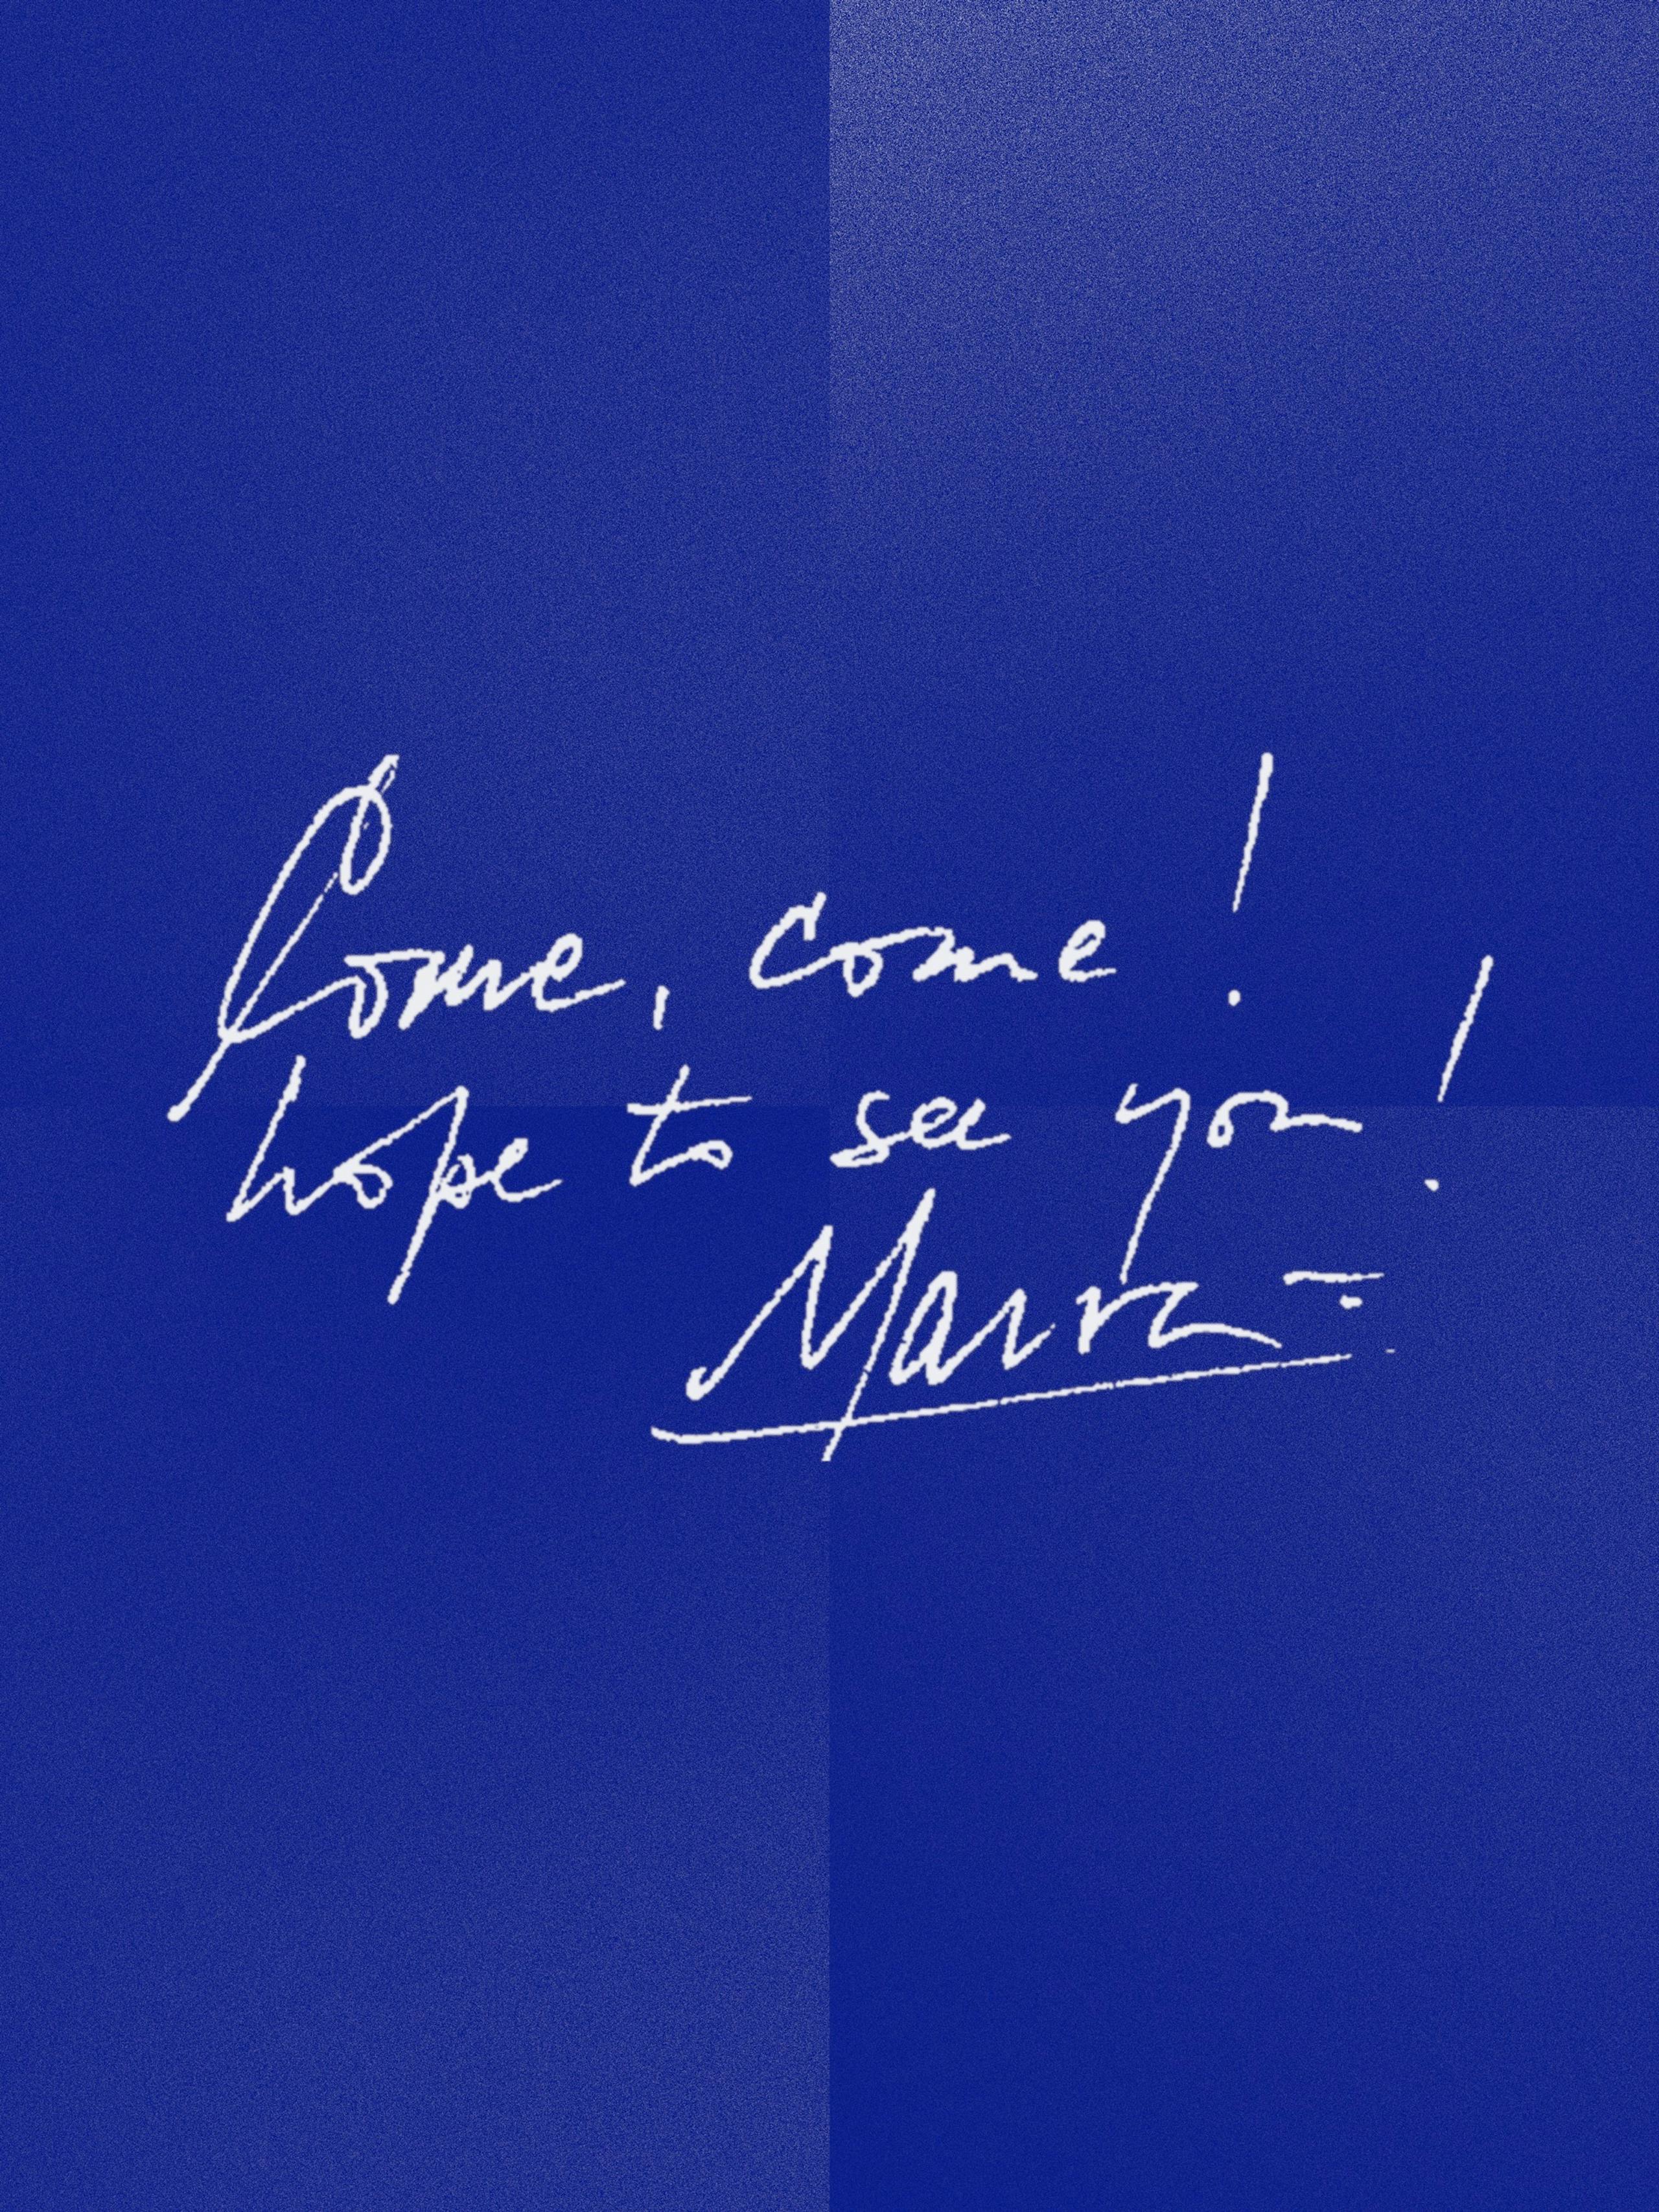 Come, come!
hope to see you!